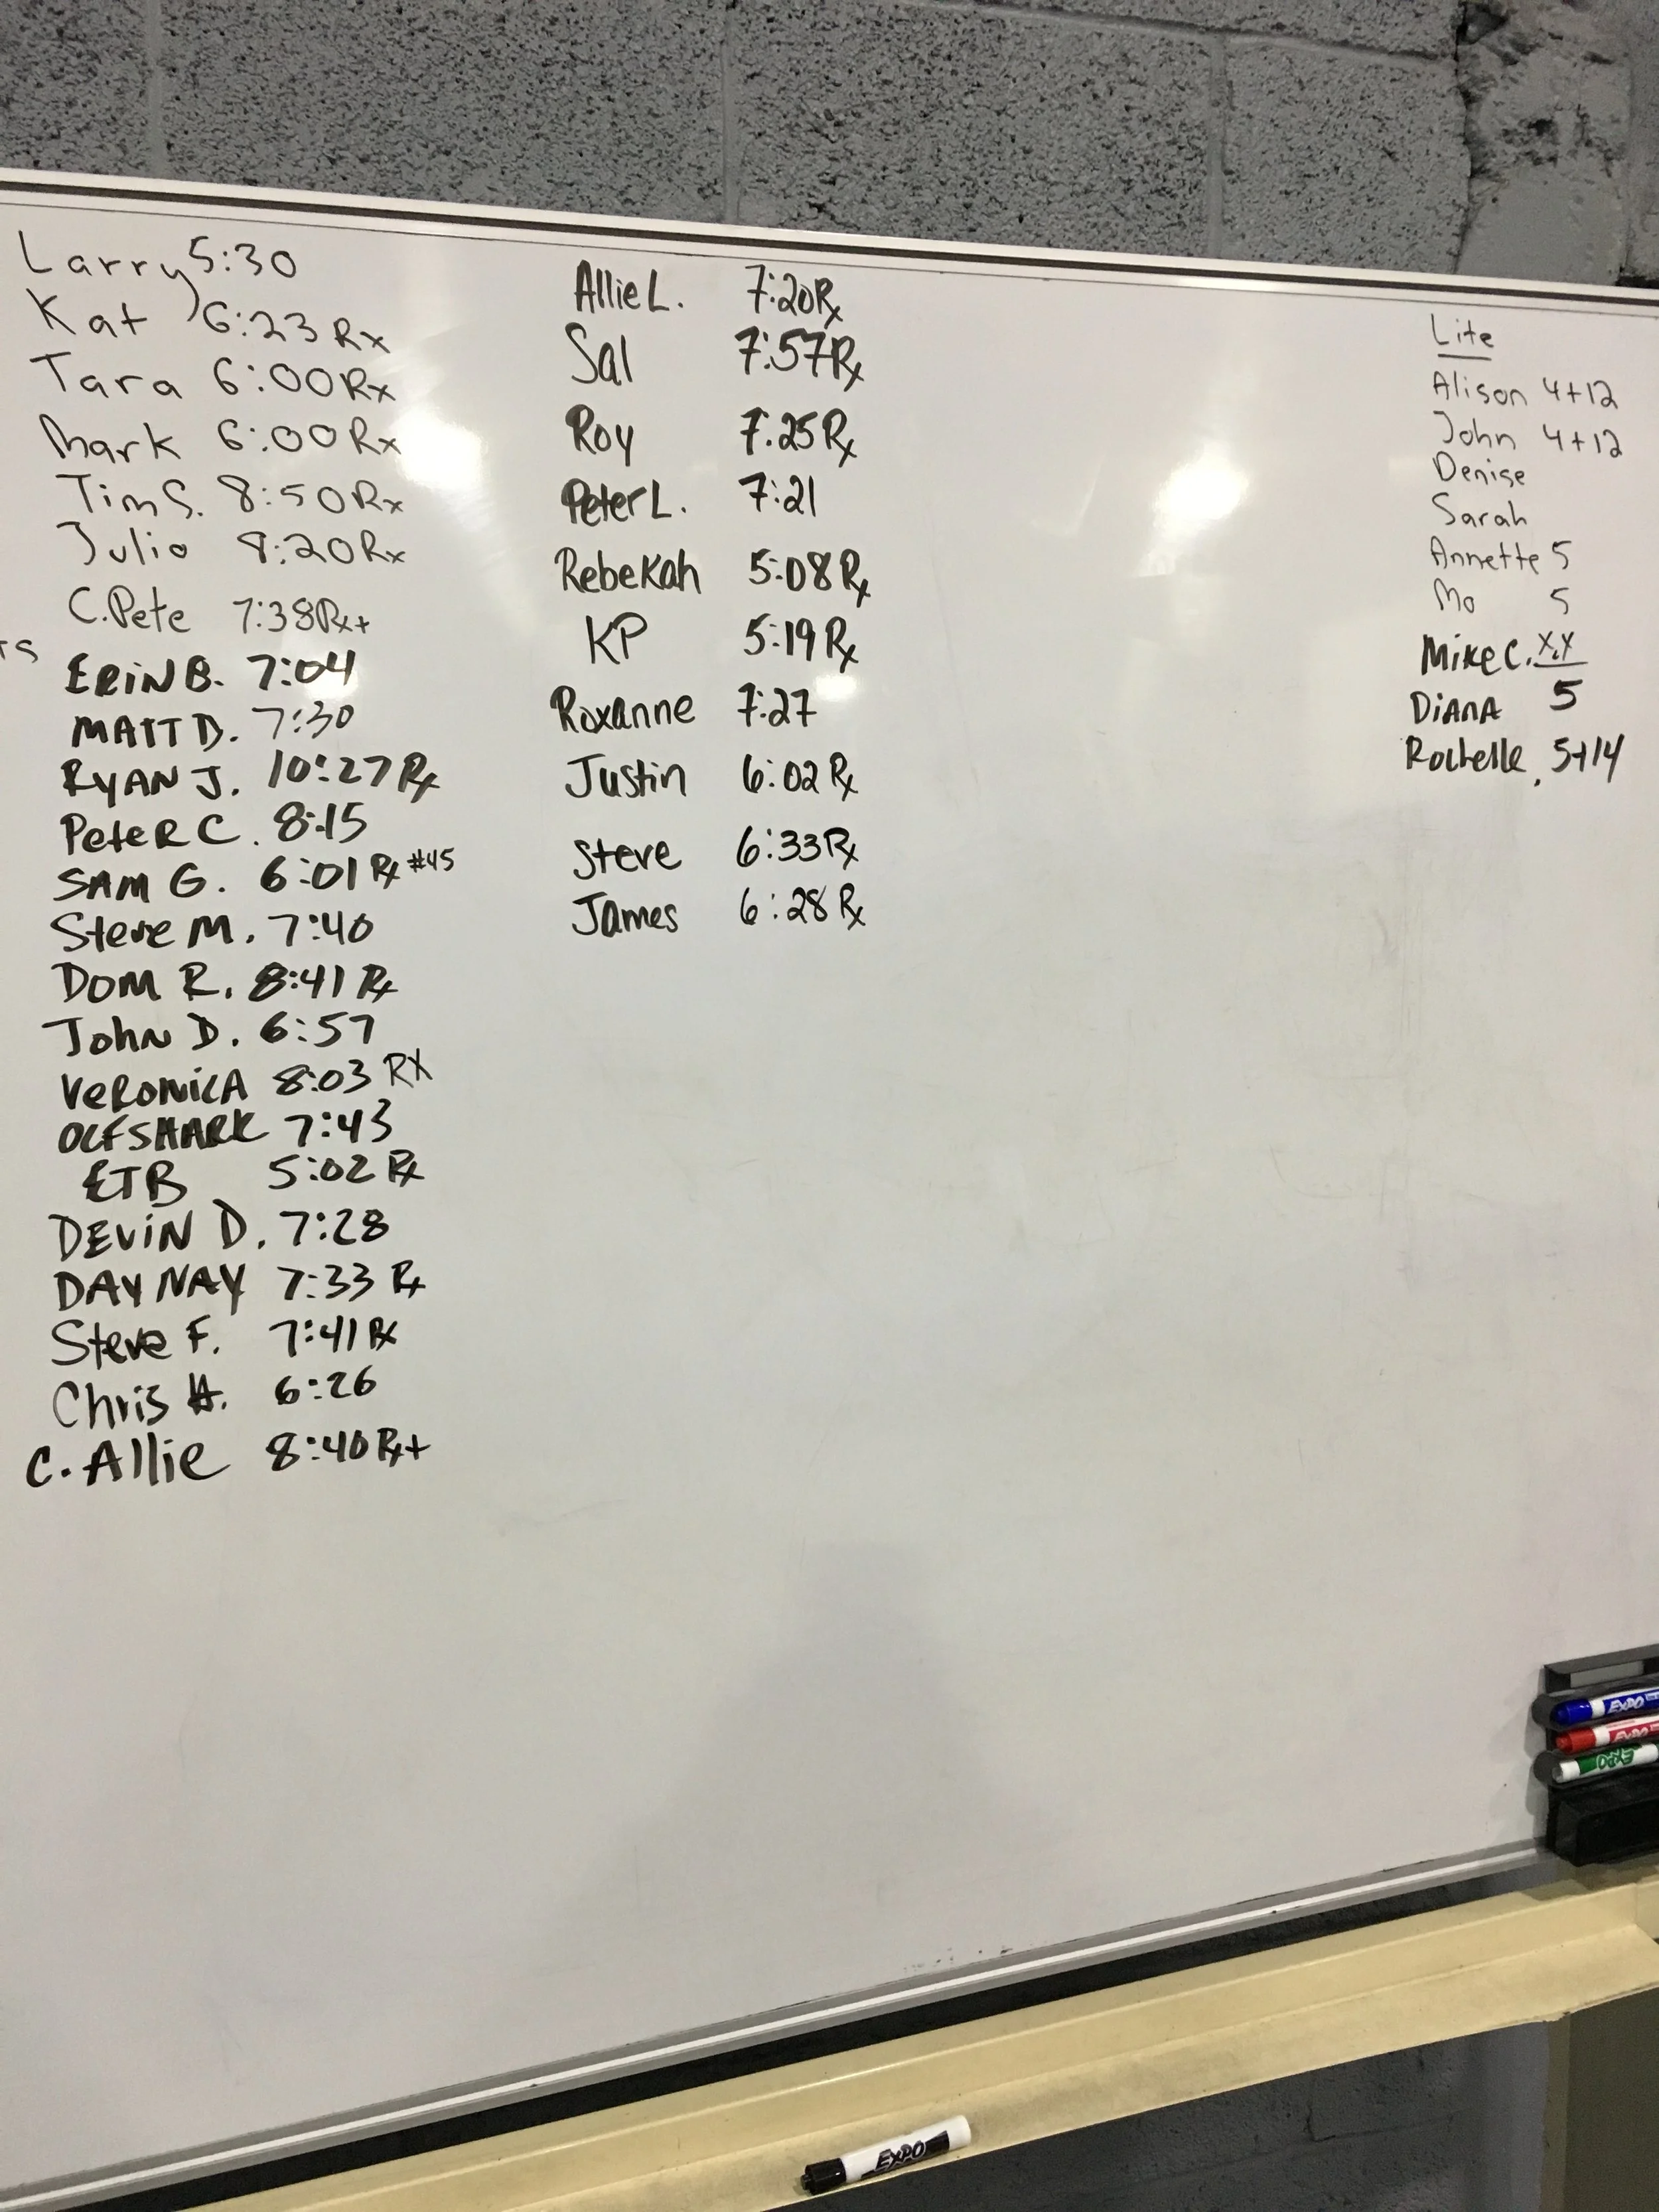 Larry 5:30
Kat 6:23 Rx
Tara 6:00 Rx
Mark 6:00 Rx
Tim S. 8:50 Rx
Julio 8:20 Rx
C.Pete 7:38 Rx+
TS
ERiN B. 7:04
MATT D. 7:30
RYAN J. 10:27 Rx
PeteR C. 8:15
SAM G. 6:01 Rx #45
Steve M. 7:40
DOM R. 8:41 Rx
John D. 6:57
VeRONicA 8:03 RX
OLFSHARK 7:43
ETB 5:02 Rx
DEViN D. 7:28
DAY NAY 7:33 Rx
Steve F. 7:41 Rx
Chris H. 6:26
C. Allie 8:40 Rx+
Allie L. 7:20 Rx
Sal 7:57 Rx
Roy 7:25 Rx
Peter L. 7:21
Rebekah 5:08 Rx
KP 5:19 Rx
Roxanne 7:27
Justin 6:02 Rx
Steve 6:33 Rx
James 6:28 Rx
Lite
Alison 4+12
John 4+12
Denise
Sarah
Annette 5
Mo 5
Mike C. X.X
DiANA 5
Rochelle 5+14
EXPO
EXPO
EXPO
EXPO